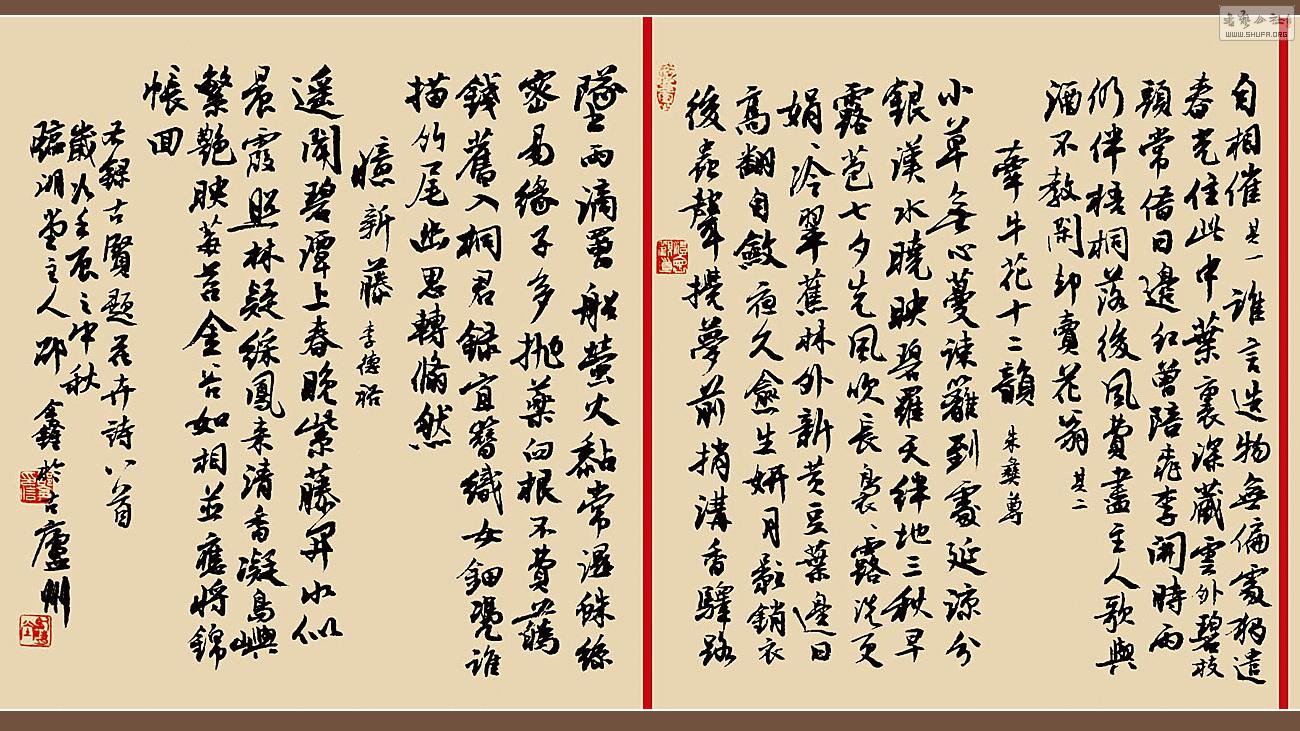 自相催 其一 誰言造物無偏處独遣
春光住此中葉裏深藏雲外碧枝
頭常借日邊紅曾陪桃李開時雨
仍伴梧桐落後風費盡主人歌與
酒不教閑却賣花翁 其二
牽牛花十二韻 朱彝尊
小草無心蔓疎籬到處延諒分
銀漢水曉映碧羅天絆地三秋早
露苞七夕先風吹長裊、露洗更
娟、冷翠蕉林外新黄豆葉邊日
高翻自斂夜久愈生妍月彩銷衣
後蟲聲攪夢前捎溝香驛路
墜雨滴罾船螢火黏常濕蛛絲
密易緣子多抛藥臼根不費蘤
錢舊入桐君録宜簪織女鈿凭誰
描竹尾幽思轉翛然
憶新藤 李德裕
遥聞碧潭上春晚紫藤開水似
晨霞照林疑綵鳳来清香凝島嶼
繁艶映莓苔金谷如相並應將錦
帳回
右録古賢題花卉詩八首
歲次壬辰之中秋
臨湖堂主人邵於古廬州
書藝公社
WWW.SHUFA.ORG